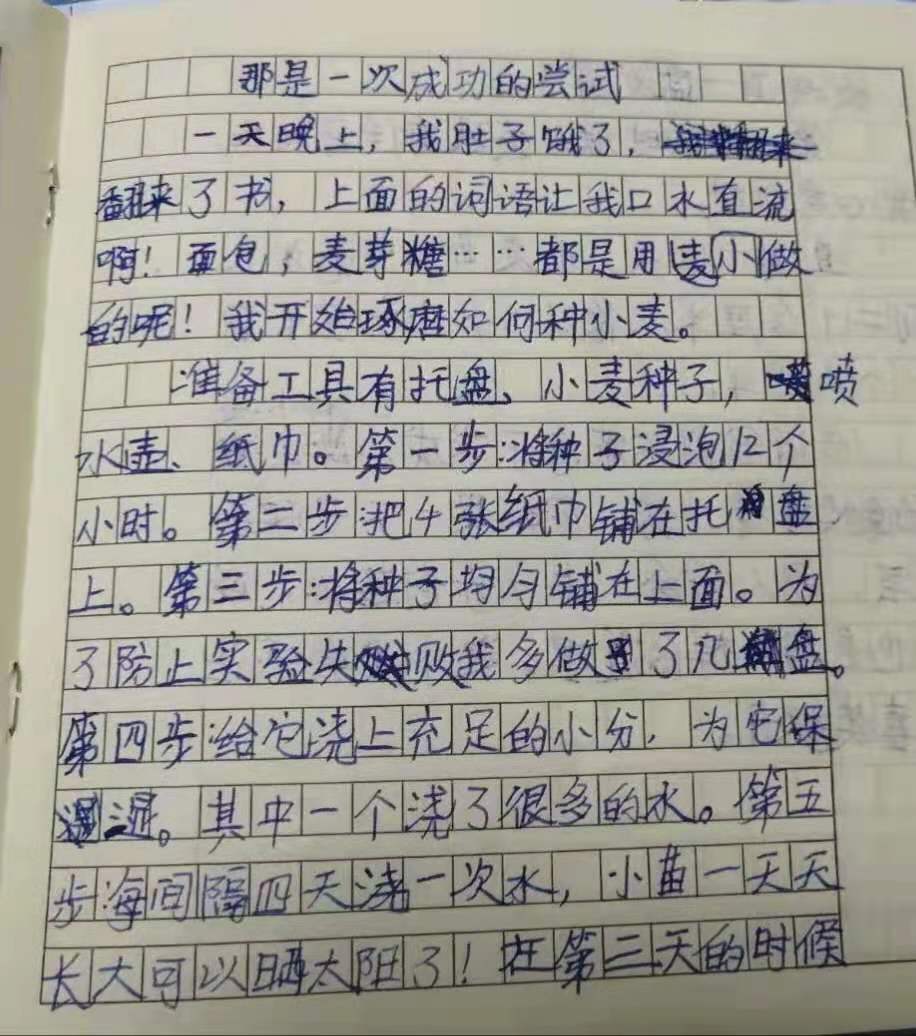 那是一次成功的尝试
一天晚上，我肚子饿了，
翻来了书，上面的词语让我口水直流
啊！面包，麦芽糖……都是用麦小做
的呢！我开始琢磨如何种小麦。
准备工具有托盘、小麦种子，喷
水壶、纸巾。第一步：将种子浸泡12个
小时。第二步：把4张纸巾铺在托盘
上。第三步：将种子均匀铺在上面。为
了防止实验失败我多做了几盘。
第四步：给它浇上充足的小分，为它保
湿。其中一个浇了很多的水。第五
步：海间隔四天浇一次水，小苗一天天
长大可以晒太阳了！在第三天的时候